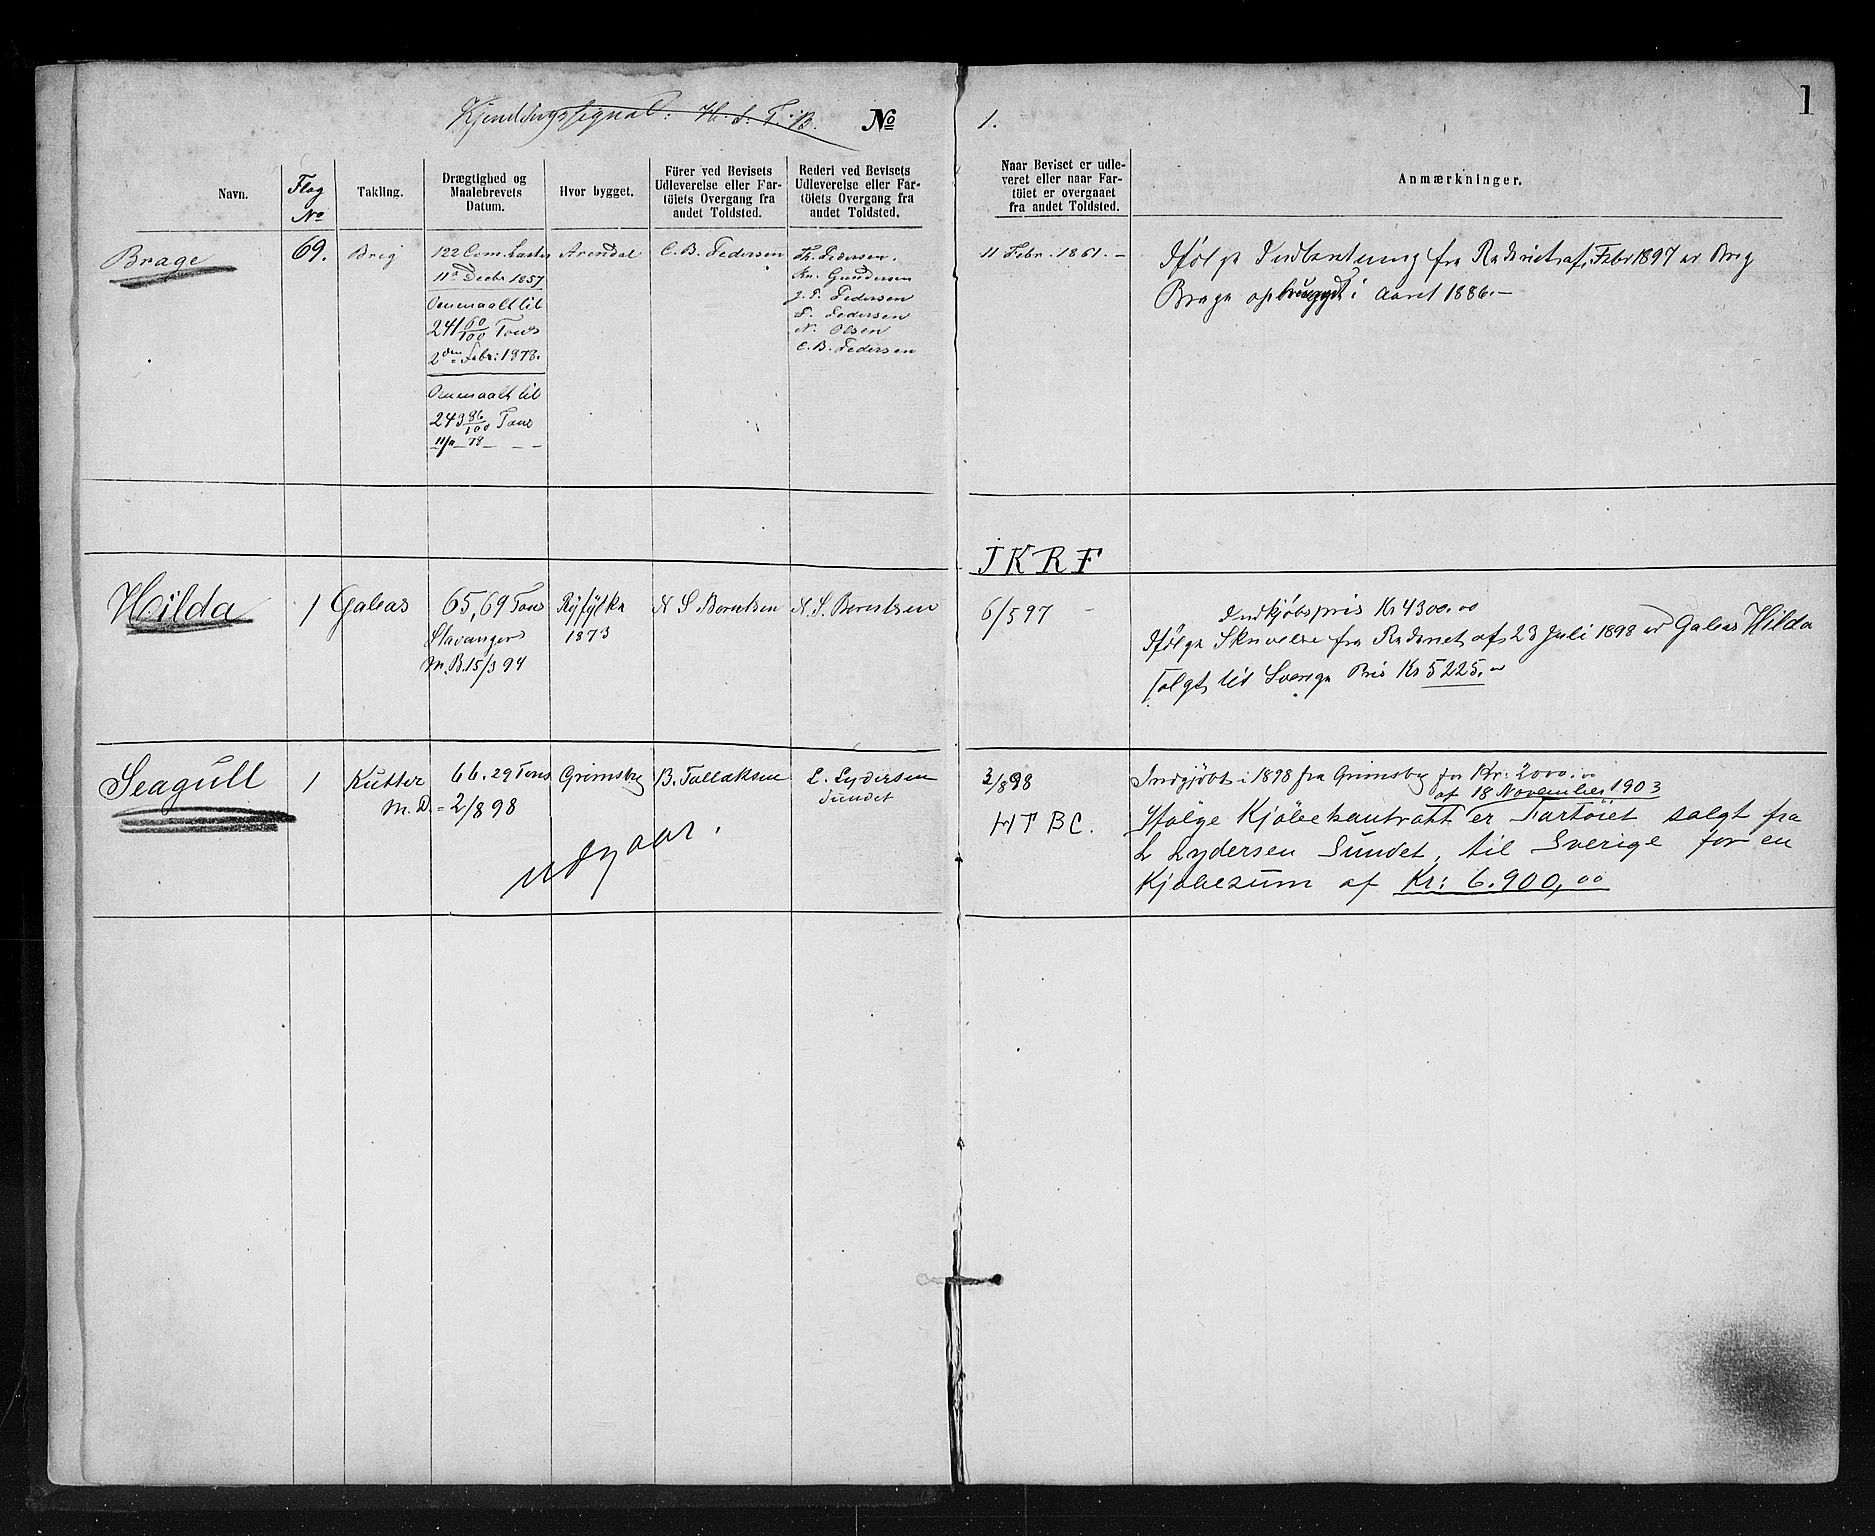 Kjendingssignal: H. S. T. B. No 1.
1
Navn.
Flag No
Takling.
Drægtighed og Maalebrevets Datum.
Hvor bygget.
Fürer ved Bevisets Udleverelse eller Fartöiets Overgang fra andet Toldsted.
Rederi ved Bevisets Udleverelse eller Fartöiets Overgang fra andet Toldsted.
Naar Beviset er udleveret eller naar Fartöiet er overgaaet fra andet Toldsted.
Anmærkninger.
Brage
69.
Brig
122 Com. Læster
11te Decbr 1857
Ommaalt til
241 60/100 Tons
2den Febr: 1878.
Ommaalt til
243 86/100 Tons
78
Arendal
C. B. Pedersen
Th. Pedersen.
Kn. Gundersen
J. P. Pedersen
P. Pedersen
N. Olsen
C. B. Pedersen
11 Febr. 1861. –
Ifølge Indberetning fra Rederiet af Febr 1897 er Brig
Brage ophugget i Aaret 1886. –
J K R F
Hilda
1
Galeas
65,69 Tons
Stavanger
M.B. 15/3 94
Ryfylke
1873
N S Berentsen
N. S. Berentsen
6/5 97
Indkjøbspris Kr 4300.00
Ifølge Skrivelse fra Rederiet af 23 Juli 1898 er Galeas Hilda
solgt til Sverige Pris Kr 5225.00
Seagull
1
Kutter
66.29 Tons
M.B. = 2/8 98
Grimsby
B. Tallaksen
L. Lydersen
Sundet
udgaar.
3/8 98
H T B C.
Indkjøbt i 1898 fra Grimsby for Kr: 2000.00
af 18 November 1903
Ifølge Kjøbekontrakt er Fartøiet solgt fra
L Lydersen Sundet, til Sverige for en
Kjøbesum af Kr: 6.900,00